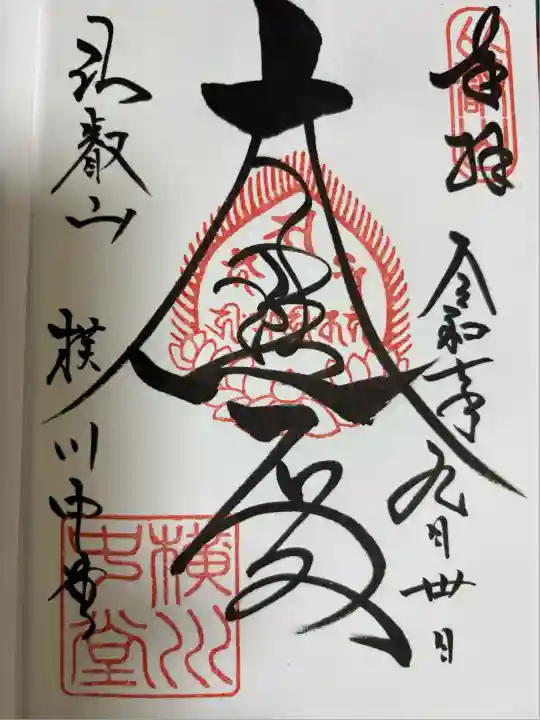 奉拝
令和
年九月卅日
大悲殿
比叡山 横川中堂
横川中堂